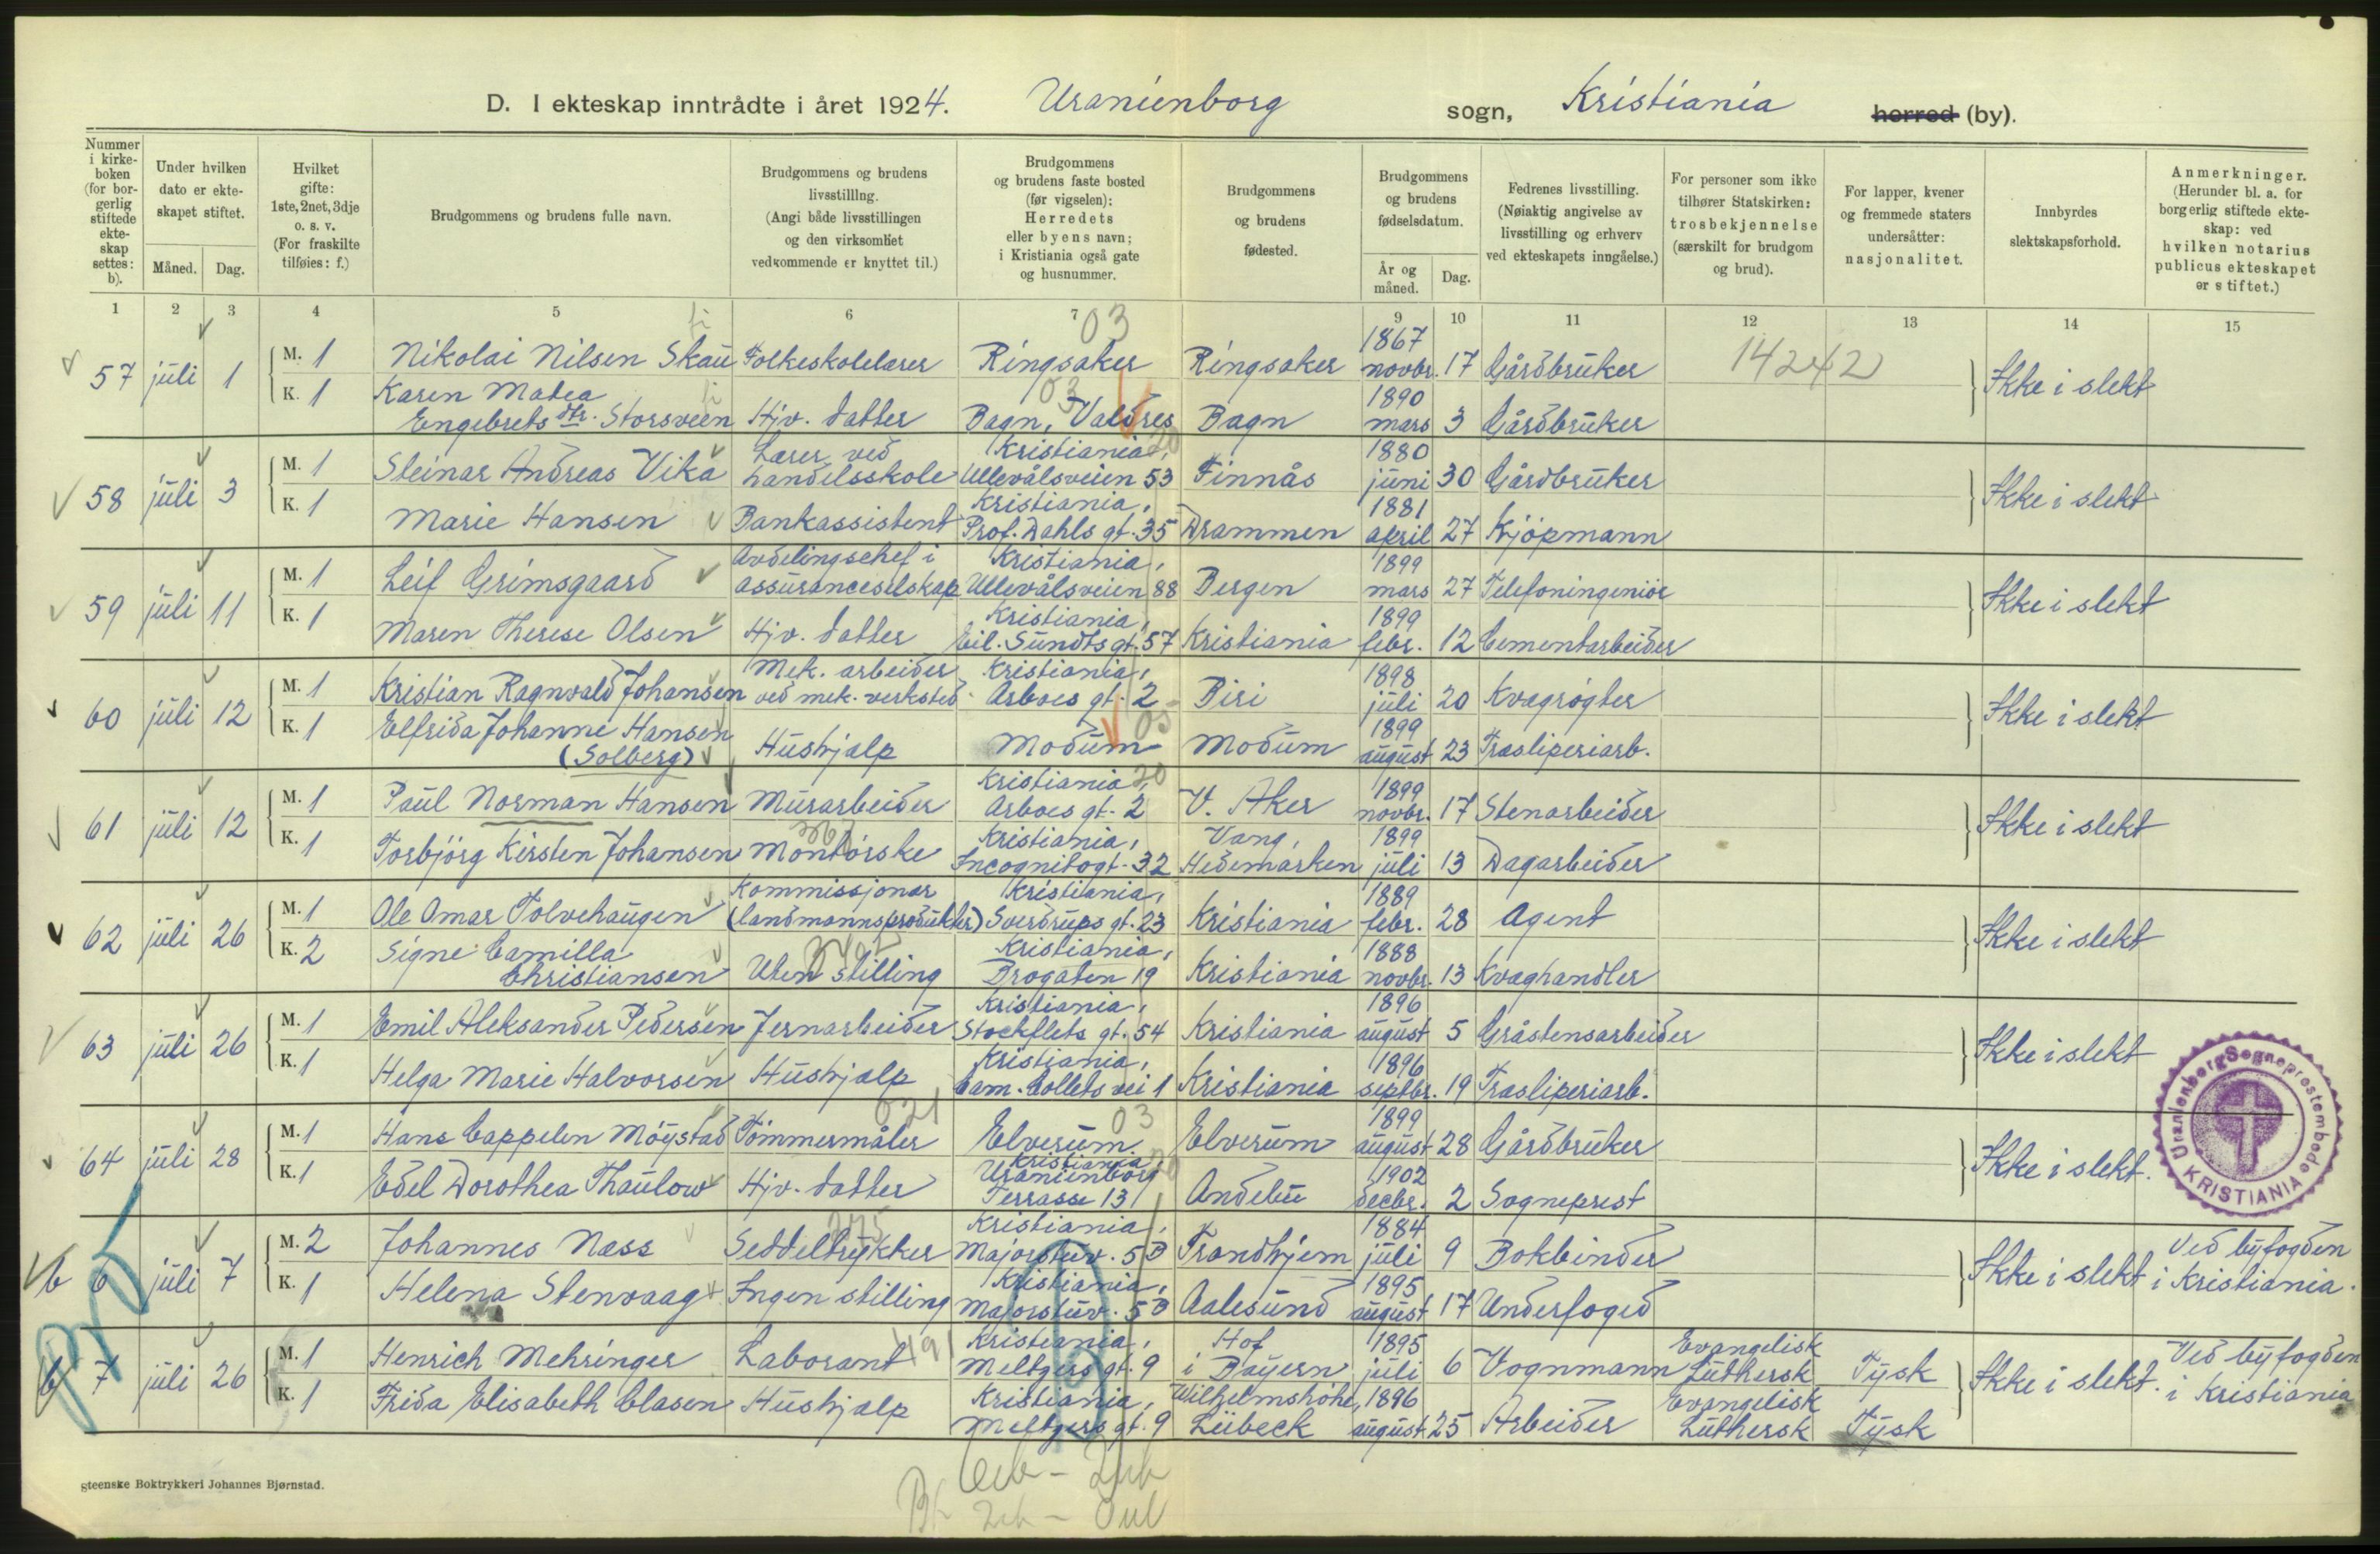 D. I ekteskap inntrådte i året 1924. Uranienborg sogn, Kristiania herred (by).
Nummer i kirkeboken (for borgerlig stiftede ekteskap settes: b).
Under hvilken dato er ekteskapet stiftet.
Måned. Dag.
Hvilket gifte: 1ste, 2net, 3dje o. s. v. (For fraskilte tilføies: f.)
Brudgommens og brudens fulle navn.
Brudgommens og brudens livsstilllng. (Angi både livsstillingen og den virksomhet vedkommende er knyttet til.)
Brudgommens og brudens faste bosted (før vigselen): Herredets eller byens navn; i Kristiania også gate og husnummer.
Brudgommens og brudens fødested.
Brudgommens og brudens fødselsdatum.
År og måned. Dag.
Fedrenes livsstilling. (Nøiaktig angivelse av livsstilling og erhverv ved ekteskapets inngåelse.)
For personer som ikke tilhører Statskirken: trosbekjennelse (særskilt for brudgom og brud).
For lapper, kvener og fremmede staters undersåtter: nasjonalitet.
Innbyrdes slektskapsforhold.
Anmerkninger. (Herunder bl. a. for borgerlig stiftede ekteskap: ved hvilken notarius publicus ekteskapet er stiftet.)
1 2 3 4 5 6 7 9 10 11 12 13 14 15
03 14242
57 juli 1 M. 1 Nikolai Nilsen Skau Folkeskolelærer Ringsaker Ringsaker 1867 novbr. 17 Gårdbruker Ikke i slekt
K. 1 Karen Matea Engebretsdtr. Storsveen Hjv. datter Bagn, Valdres Bagn 1890 mars 3 Gårdbruker
58 juli 3 M. 1 Steinar Andreas Vika Lærer ved handelsskole Kristiania, Ullevålsveien 53 Finnås 1880 juni 30 Gårdbruker Ikke i slekt
K. 1 Marie Hansen Bankassistent Kristiania, Prof. Dahls gt. 35 Drammen 1881 april 27 Kjöpmann
59 juli 11 M. 1 Leif Grimsgaard Avdelingschef i assuranceselskap Kristiania, Ullevålsveien 88 Bergen 1899 mars 27 Telefoningeniör Ikke i slekt
K. 1 Maren Therese Olsen Hjv. datter Kristiania, Eil. Sundts gt. 57 Kristiania 1899 febr. 12 Cementarbeider
60 juli 12 M. 1 Kristian Ragnvald Johansen Mek. arbeider ved mek. verksted Kristiania, Arboes gt. 2 Biri 1898 juli 20 Kvægrögter Ikke i slekt
K. 1 Elfrida Johanne Hansen (Solberg) Hushjælp Modum Modum 1899 august 23 Træsliperiarb.
61 juli 12 M. 1 Paul Norman Hansen Murarbeider Kristiania, Arboes gt. 2 V. Aker 1899 novbr. 17 Stenarbeider Ikke i slekt
K. 1 Torbjörg Kirsten Johansen Montörske Kristiania, Incognitogt. 32 Vang, Hedemarken 1899 juli 13 Dagarbeider
62 juli 26 M. 1 Ole Omar Tolvehaugen Kommissjonær (landmannsprodukter) Kristiania, Sverdrups gt. 23 Kristiania 1889 febr. 28 Agent Ikke i slekt
K. 2 Signe Camilla Christiansen Uten stilling Kristiania, Brogaten 19 Kristiania 1888 novbr. 13 Kvæghandler
63 juli 26 M. 1 Emil Aleksander Pedersen Jernarbeider Kristiania, Stockflets gt. 54 Kristiania 1896 august 5 Gråstensarbeider Ikke i slekt
K. 1 Helga Marie Halvorsen Hushjælp Kristiania, Cam. Colletts vei 1 Kristiania 1896 septbr. 19 Træsliperiarb.
64 juli 28 M. 1 Hans Cappelen Möystad Tömmermåler Elverum Elverum 1899 august 28 Gårdbruker Ikke i slekt.
K. 1 Edel Dorothea Thaulow Hjv. datter Kristiania, Uranienborg Terrasse 13 Andebu 1902 decbr. 2 Sogneprest
b 6 juli 7 M. 2 Johannes Næss Seddeltrykker Kristiania, Majorstuv. 5B Trondhjem 1884 juli 9 Bokbinder Ikke i slekt Ved byfogden i Kristiania.
K. 1 Helena Stenvaag Ingen stilling Kristiania, Majorstuv. 5B Aalesund 1895 august 17 Underfoged
b 7 juli 26 M. 1 Henrich Mehringer Laborant Kristiania, Meltzers gt. 9 Hof i Bayern 1895 juli 6 Vognmann Evangelisk Luthersk Tysk Ikke i slekt. Ved byfogden i Kristiania
K. 1 Frida Elisabeth Clasen Hushjælp Kristiania, Meltzers gt. 9 Wilhelmshöhe, Lübeck 1896 august 25 Arbeider Evangelisk Luthersk Tysk
Uranienborg Sogneprestembede KRISTIANIA
Steenske Boktrykkeri Johannes Bjørnstad.